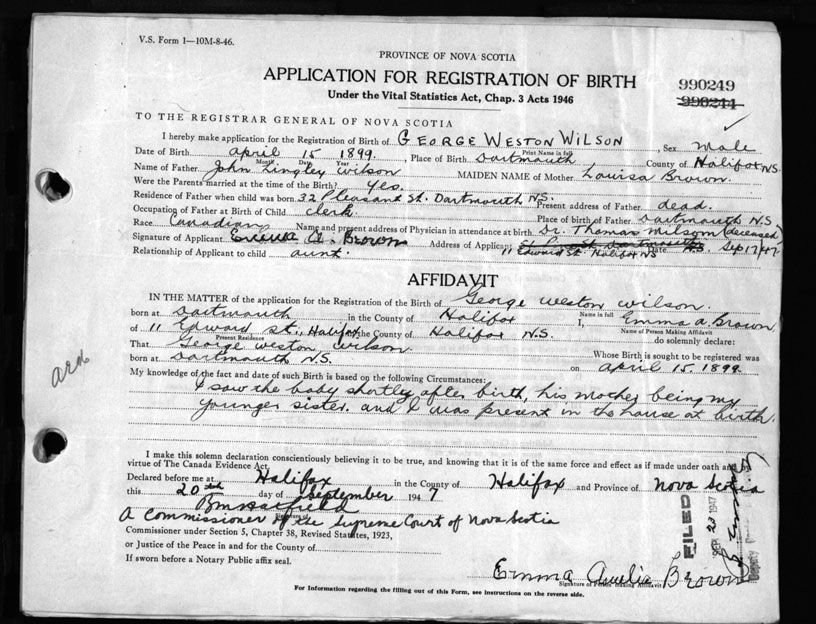 V.S. Form 1—10M-8-46.
PROVINCE OF NOVA SCOTIA
APPLICATION FOR REGISTRATION OF BIRTH
Under the Vital Statistics Act, Chap. 3 Acts 1946
990249
990244
TO THE REGISTRAR GENERAL OF NOVA SCOTIA
I hereby make application for the Registration of Birth of GEORGE WESTON WILSON, Sex male
Print Name in full
Date of Birth april 15 1899, Place of Birth Dartmouth County of Halifax NS
Month Day Year
Name of Father John Lingley Wilson MAIDEN NAME of Mother Louisa Brown.
Were the Parents married at the time of the Birth? Yes.
Residence of Father when child was born 32 Pleasant St. Dartmouth NS. Present address of Father dead.
Occupation of Father at Birth of Child clerk Place of birth of Father Dartmouth N.S.
Race Canadian Name and present address of Physician in attendance at birth Dr. Thomas Milsom (deceased)
Signature of Applicant Emma A. Brown Address of Applicant 11 Edward St Halifax NS Date Sep 17/47
Relationship of Applicant to child aunt.
AFFIDAVIT
IN THE MATTER of the application for the Registration of the Birth of George Weston Wilson.
Name in full
born at Dartmouth in the County of Halifax I, Emma A Brown
Name of Person Making Affidavit
of 11 Edward St., Halifax in the County of Halifax N.S. do solemnly declare:
Present Residence
That George Weston Wilson. Whose Birth is sought to be registered was
born at Dartmouth N.S. on april 15. 1899
My knowledge of the fact and date of such Birth is based on the following Circumstances:
I saw the body shortly after birth, his mother being my
younger sister. and I was present in the house at birth.
I make this solemn declaration conscientiously believing it to be true, and knowing that it is of the same force and effect as if made under oath and by
virtue of The Canada Evidence Act.
Declared before me at Halifax in the County of Halifax and Province of Nova Scotia
this 20th day of September 1947
Signature of
A Commissioner of the Supreme Court of Nova Scotia
Commissioner under Section 5, Chapter 38, Revised Statutes, 1923,
or Justice of the Peace in and for the County of
If sworn before a Notary Public affix seal.
FILED
SEP 23 1947
Deputy
Emma Amelia Brown
Signature of Person Making Affidavit
For Information regarding the filling out of this Form, see instructions on the reverse side.